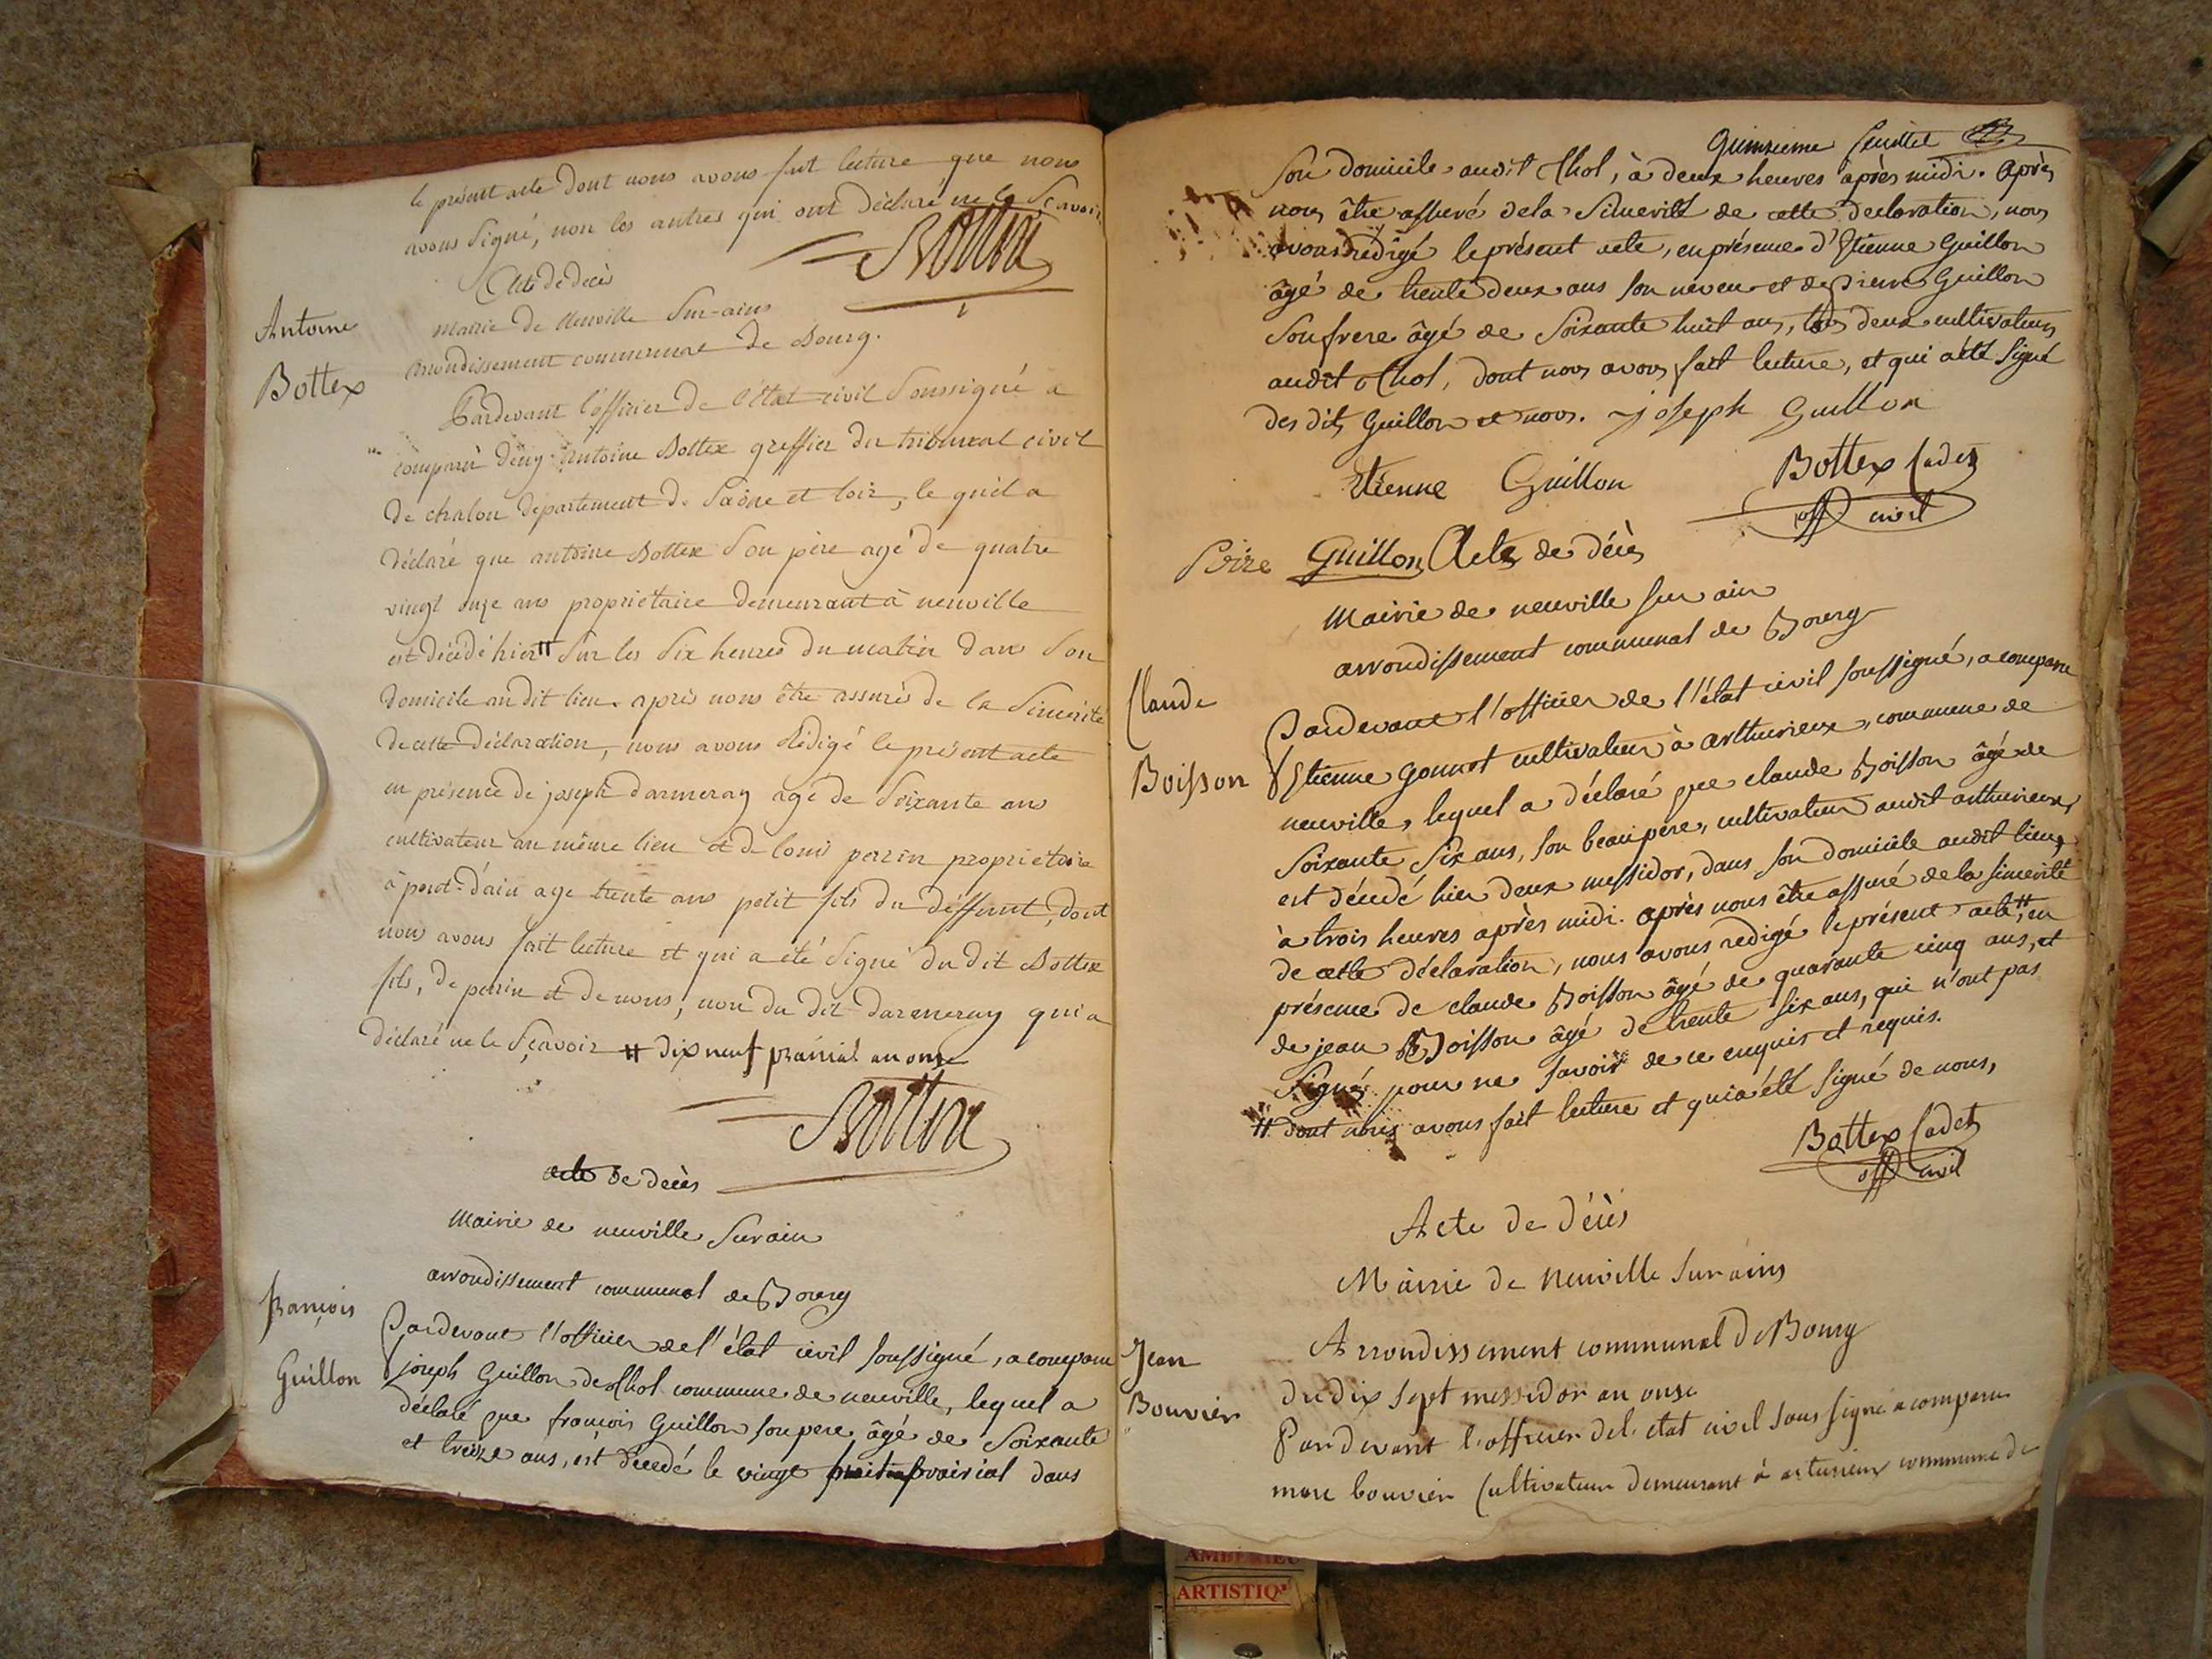 le présent acte dont nous avons fait lecture que nous
avons signé, non les autres qui ont déclaré ne le sçavoir
Bottex
Acte de decès
mairie de Neuville sur-ains
arrondissement communal de Bourg.
Antoine
Bottex
Pardevant l'officier de l'état civil soussigné a
comparu deny-Antoine Bottex greffier du tribunal civil
de chalon département de Saône et loir, le quel a
déclaré que antoine Bottex son père agé de quatre
vingt onze ans proprietaire demeurant à neuville
est décédé hier # sur les six heures du matin dans son
domicile au dit lieu. après nous être assurés de la sincérité
de cette déclaration, nous avons rédigé le présent acte
en présence de joseph darmeray agé de soixante ans
cultivateur au même lieu et de louis perrin propriétaire
à pont-d'ain age trente ans petit fils du deffunt, dont
nous avons fait lecture et qui a été signé du dit Bottex
fils, de perrin et de nous, non du dit darmeray qui a
déclaré ne le sçavoir # dix neuf prairial an onze
Bottex
acte de decès
Mairie de neuville sur ain
arrondissement communal de Bourg
françois
Guillon
Pardevant l'officier de l'état civil soussigné, a comparu
joseph Guillon de Chol commune de neuville, lequel a
déclaré que françois Guillon son pere âgé de soixante
et treize ans, est décédé le vingt prairial dans
Quinzieme feuillet
son domicile audit Chol, à deux heures après midi. Après
nous être assuré de la sincerité de cette declaration, nous
avons rédigé le présent acte, en présence d'Etienne Guillon
âgé de trente deux ans son neveu et de pierre Guillon
son frere âgé de soixante huit ans, tous deux cultivateurs
audit Chol, dont nous avons fait lecture, et qui a été signé
des dits Guillon et nous. joseph Guillon
Etienne Guillon
Bottex Cadet
off civil
Guillon Acte de décès
Mairie de neuville sur ain
arrondissement communal de Bourg
Claude
Boisson
Pardevant l'officier de l'état civil soussigné, a comparu
Etienne Gonnot cultivateur à arthurieux, commune de
neuville, lequel a déclaré que claude Boisson âgé de
soixante six ans, son beau pere, cultivateur audit arthurieux,
est décédé hier deux messidor, dans son domicile audit lieu,
à trois heures après midi. après nous être assuré de la sincerité
de cette déclaration, nous avons redigé le présent acte, # en
présence de claude Boisson âgé de quarante cinq ans, et
de jean Boisson âgé de trente six ans, qui n'ont pas
signé pour ne savoir de ce enquis et requis.
# dont nous avons fait lecture et qui a été signé de nous,
Bottex Cadet
off civil
Acte de décès
Mairie de Neuville sur ains
Arrondissement communal de Bourg
Jean
Bouvier
du dix sept messidor an onze
Pardevant l'officier del etat civil sous signé a comparu
marc bouvier Cultivateur demeurant à arturieux commune de
ARTISTIQ